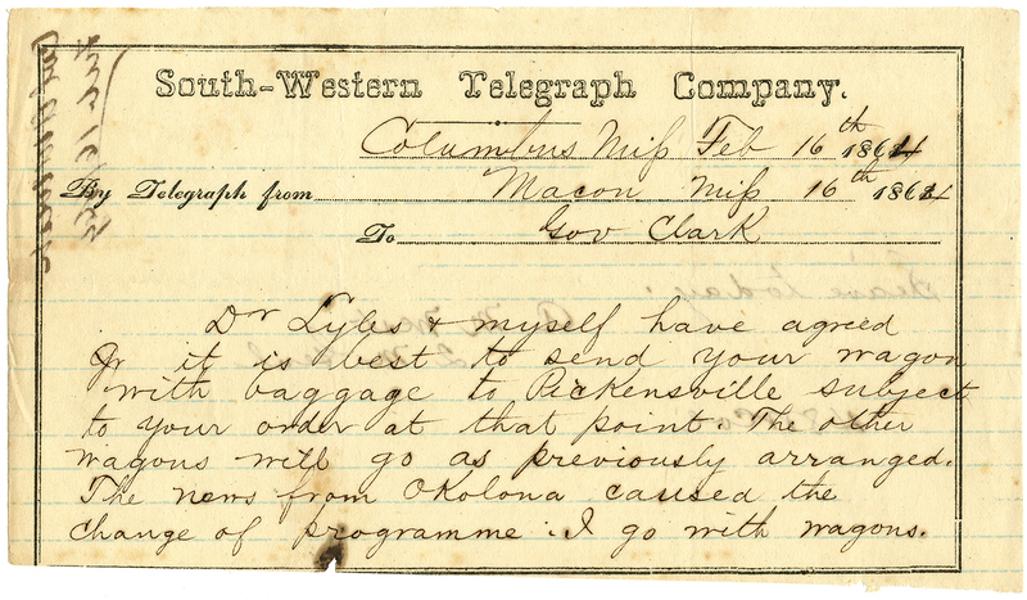 South-Western Telegraph Company.
Columbus Miss Feb 16th 1864
By Telegraph from Macon Miss 16th 1864
To Gov Clark
Dr Lyles & myself have agreed
it is best to send your wagon
with baggage to Pickensville subject
to your order at that point. The other
wagons will go as previously arranged.
The news from Okolona caused the
change of programme. I go with wagons.
Leave today.